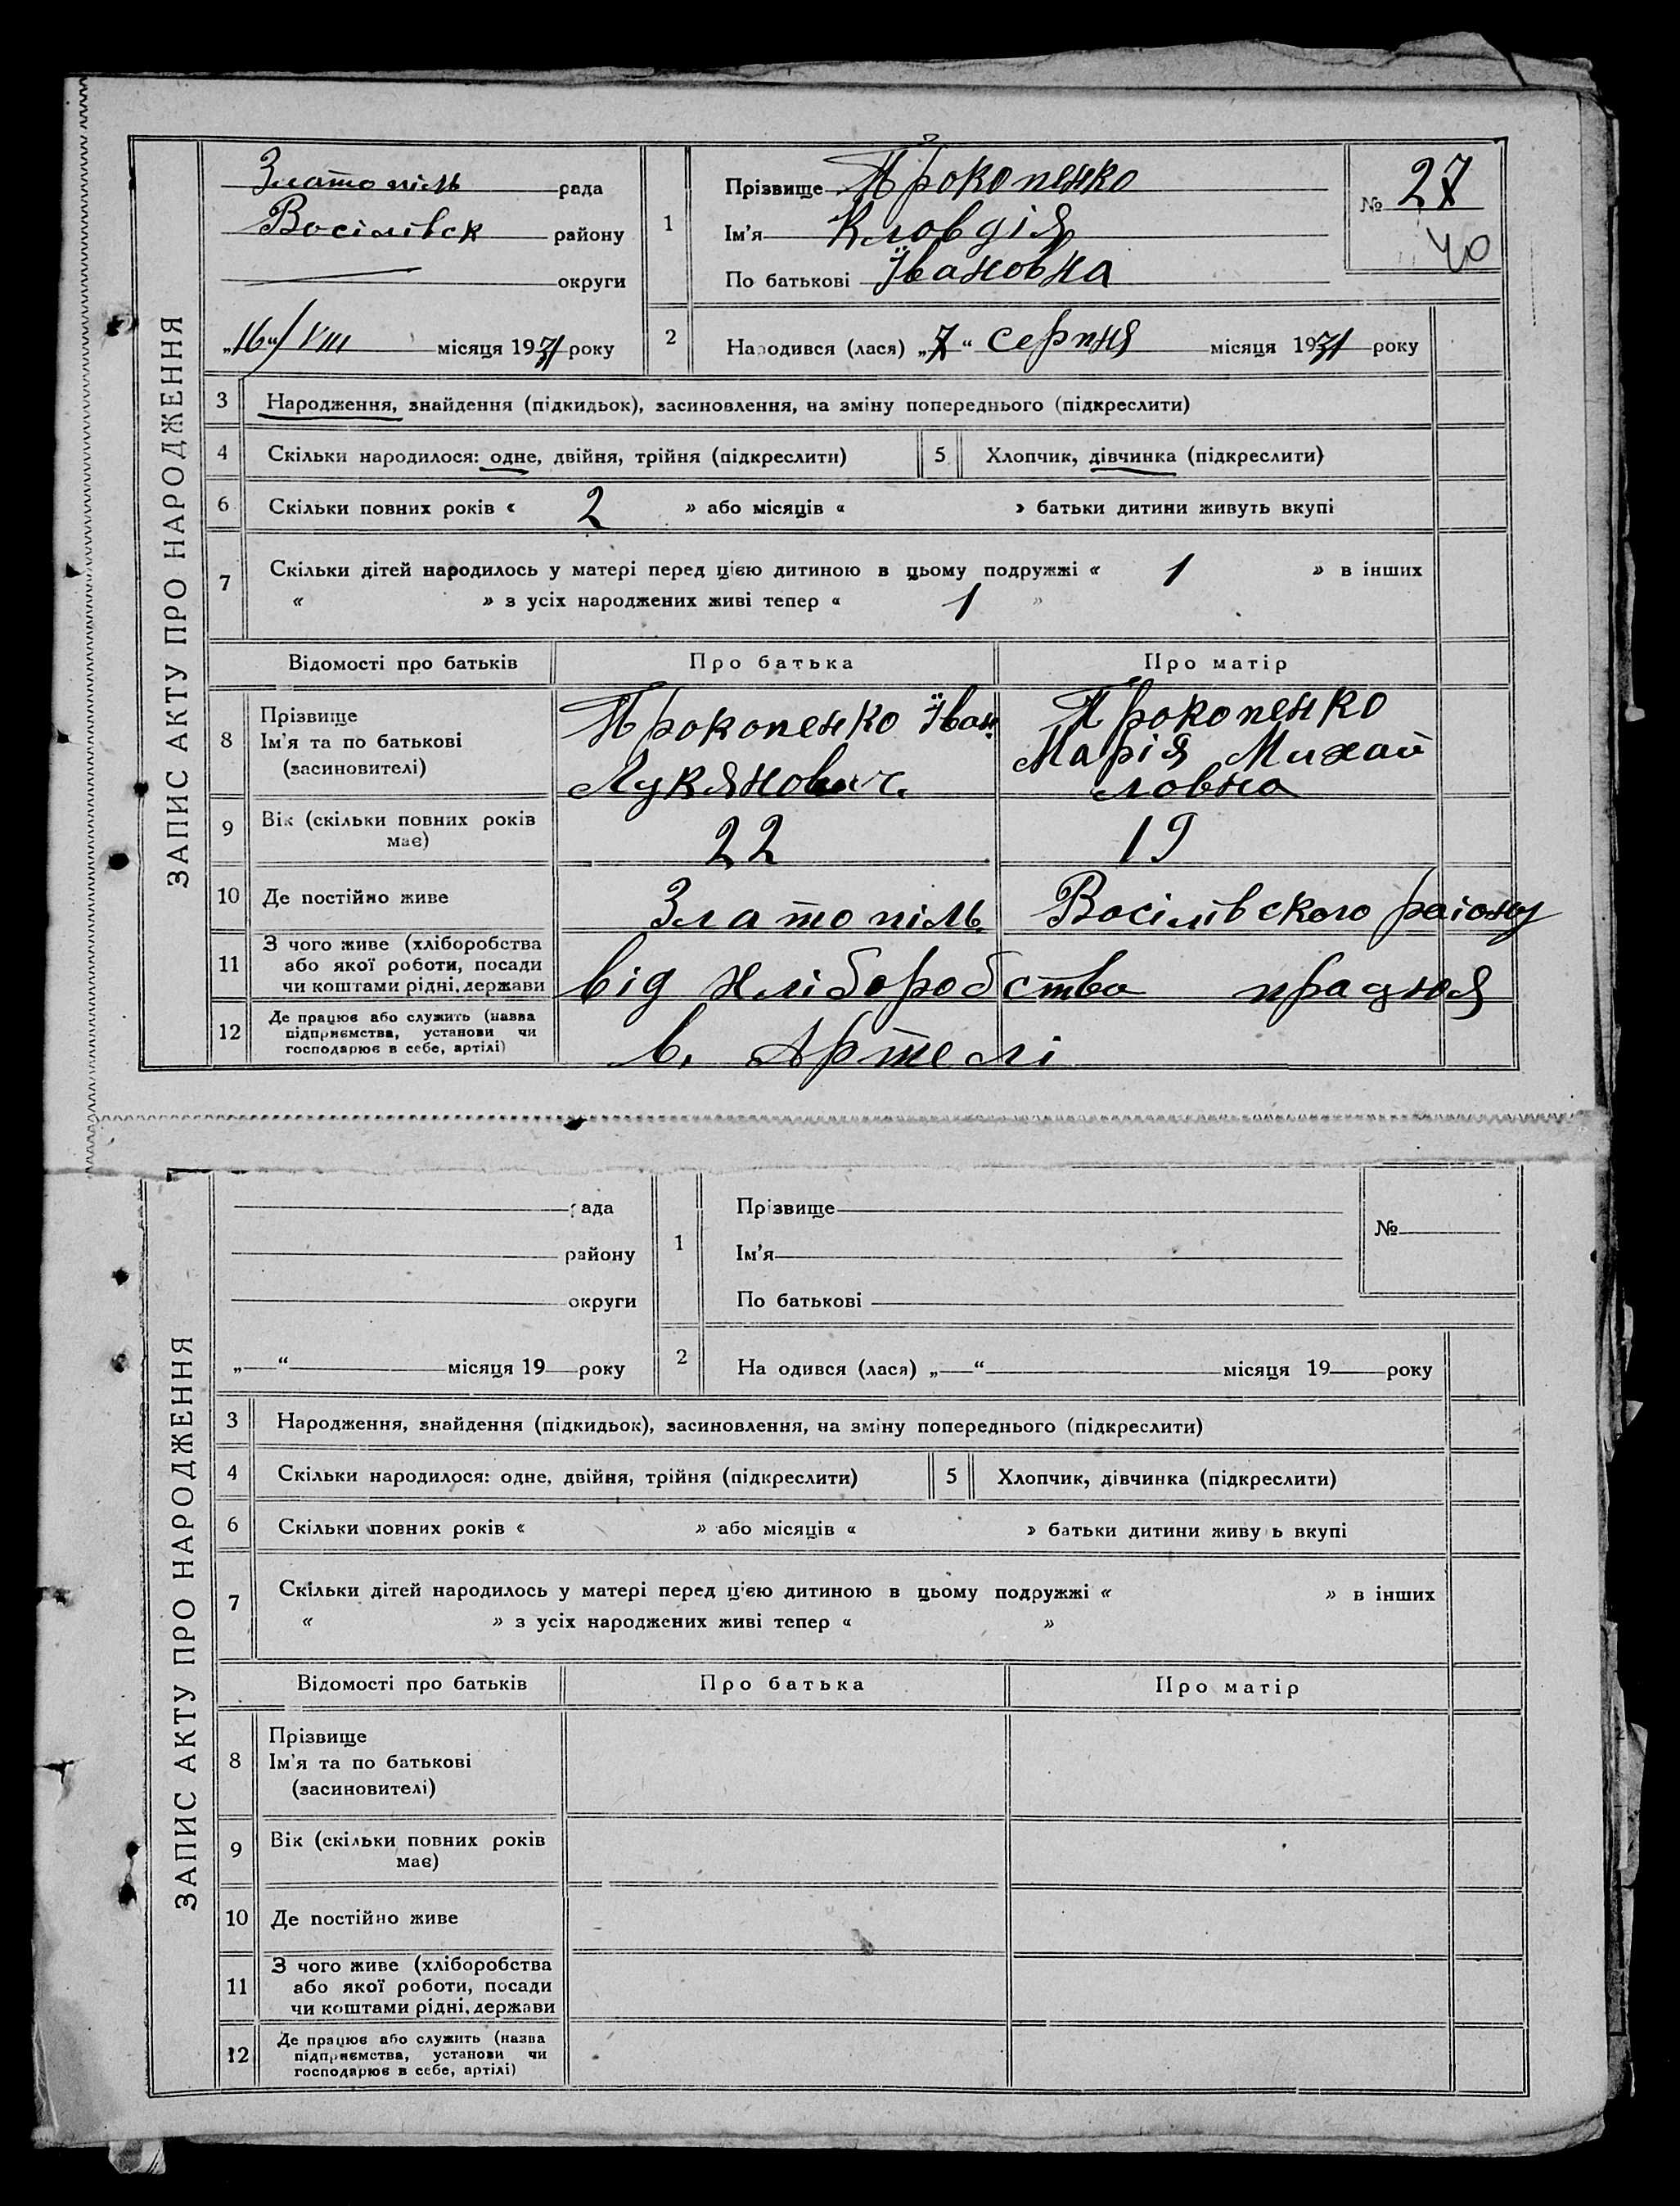 ЗАПИС АКТУ ПРО НАРОДЖЕННЯ
Златопіль рада
Восілівск району
округи
„16“/VIII місяця 1931 року
1 Прізвище Прокопенко
Ім'я Кловдія
По батькові Івановна
№ 27
40
2 Народився (лася) „7“ серпня місяця 1931 року
3 Народження, знайдення (підкидьок), засиновлення, на зміну попереднього (підкреслити)
4 Скільки народилося: одне, двійня, трійня (підкреслити) 5 Хлопчик, дівчинка (підкреслити)
6 Скільки повних років « 2 » або місяців « » батьки дитини живуть вкупі
7 Скільки дітей народилось у матері перед цією дитиною в цьому подружжі « 1 » в інших
« » з усіх народжених живі тепер « 1 »
Відомості про батьків Про батька Про матір
8 Прізвище
Ім'я та по батькові
(засиновителі)
Прокопенко Іван
Лукянович.
Прокопенко
Марія Михай
ловна
9 Вік (скільки повних років
має)
22 19
10 Де постійно живе Златопіль Восілівского раіону
11 З чого живе (хліборобства
або якої роботи, посади
чи коштами рідні, держави
від хліборобства працюя
12 Де працює або служить (назва
підприємства, установи чи
господарює в себе, артілі)
в. Артелі
ЗАПИС АКТУ ПРО НАРОДЖЕННЯ
рада
району
округи
„ “ місяця 19 року
1 Прізвище
Ім'я
По батькові
№
2 На одився (лася) „ “ місяця 19 року
3 Народження, знайдення (підкидьок), засиновлення, на зміну попереднього (підкреслити)
4 Скільки народилося: одне, двійня, трійня (підкреслити) 5 Хлопчик, дівчинка (підкреслити)
6 Скільки повних років « » або місяців « » батьки дитини живу ь вкупі
7 Скільки дітей народилось у матері перед цією дитиною в цьому подружжі « » в інших
« » з усіх народжених живі тепер « »
Відомості про батьків Про батька Про матір
8 Прізвище
Ім'я та по батькові
(засиновителі)
9 Вік (скільки повних років
має)
10 Де постійно живе
11 З чого живе (хліборобства
або якої роботи, посади
чи коштами рідні, держави
12 Де працює або служить (назва
підприємства, установи чи
господарює в себе, артілі)